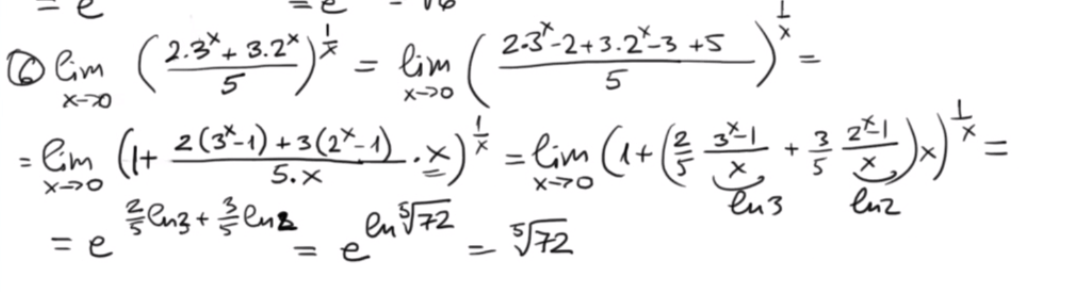 = e = e = √6
⑥ lim x→0 ( (2.3^x + 3.2^x) / 5 )^(1/x) = lim x→0 ( (2.3^x - 2 + 3.2^x - 3 + 5) / 5 )^(1/x) =
= lim x→0 ( 1 + (2(3^x - 1) + 3(2^x - 1)) / (5.x) . x )^(1/x) = lim x→0 ( 1 + ( 2/5 (3^x - 1)/x + 3/5 (2^x - 1)/x ) x )^(1/x) =
ln3 ln2
= e^(2/5 ln3 + 3/5 ln2) = e^(ln ⁵√72) = ⁵√72